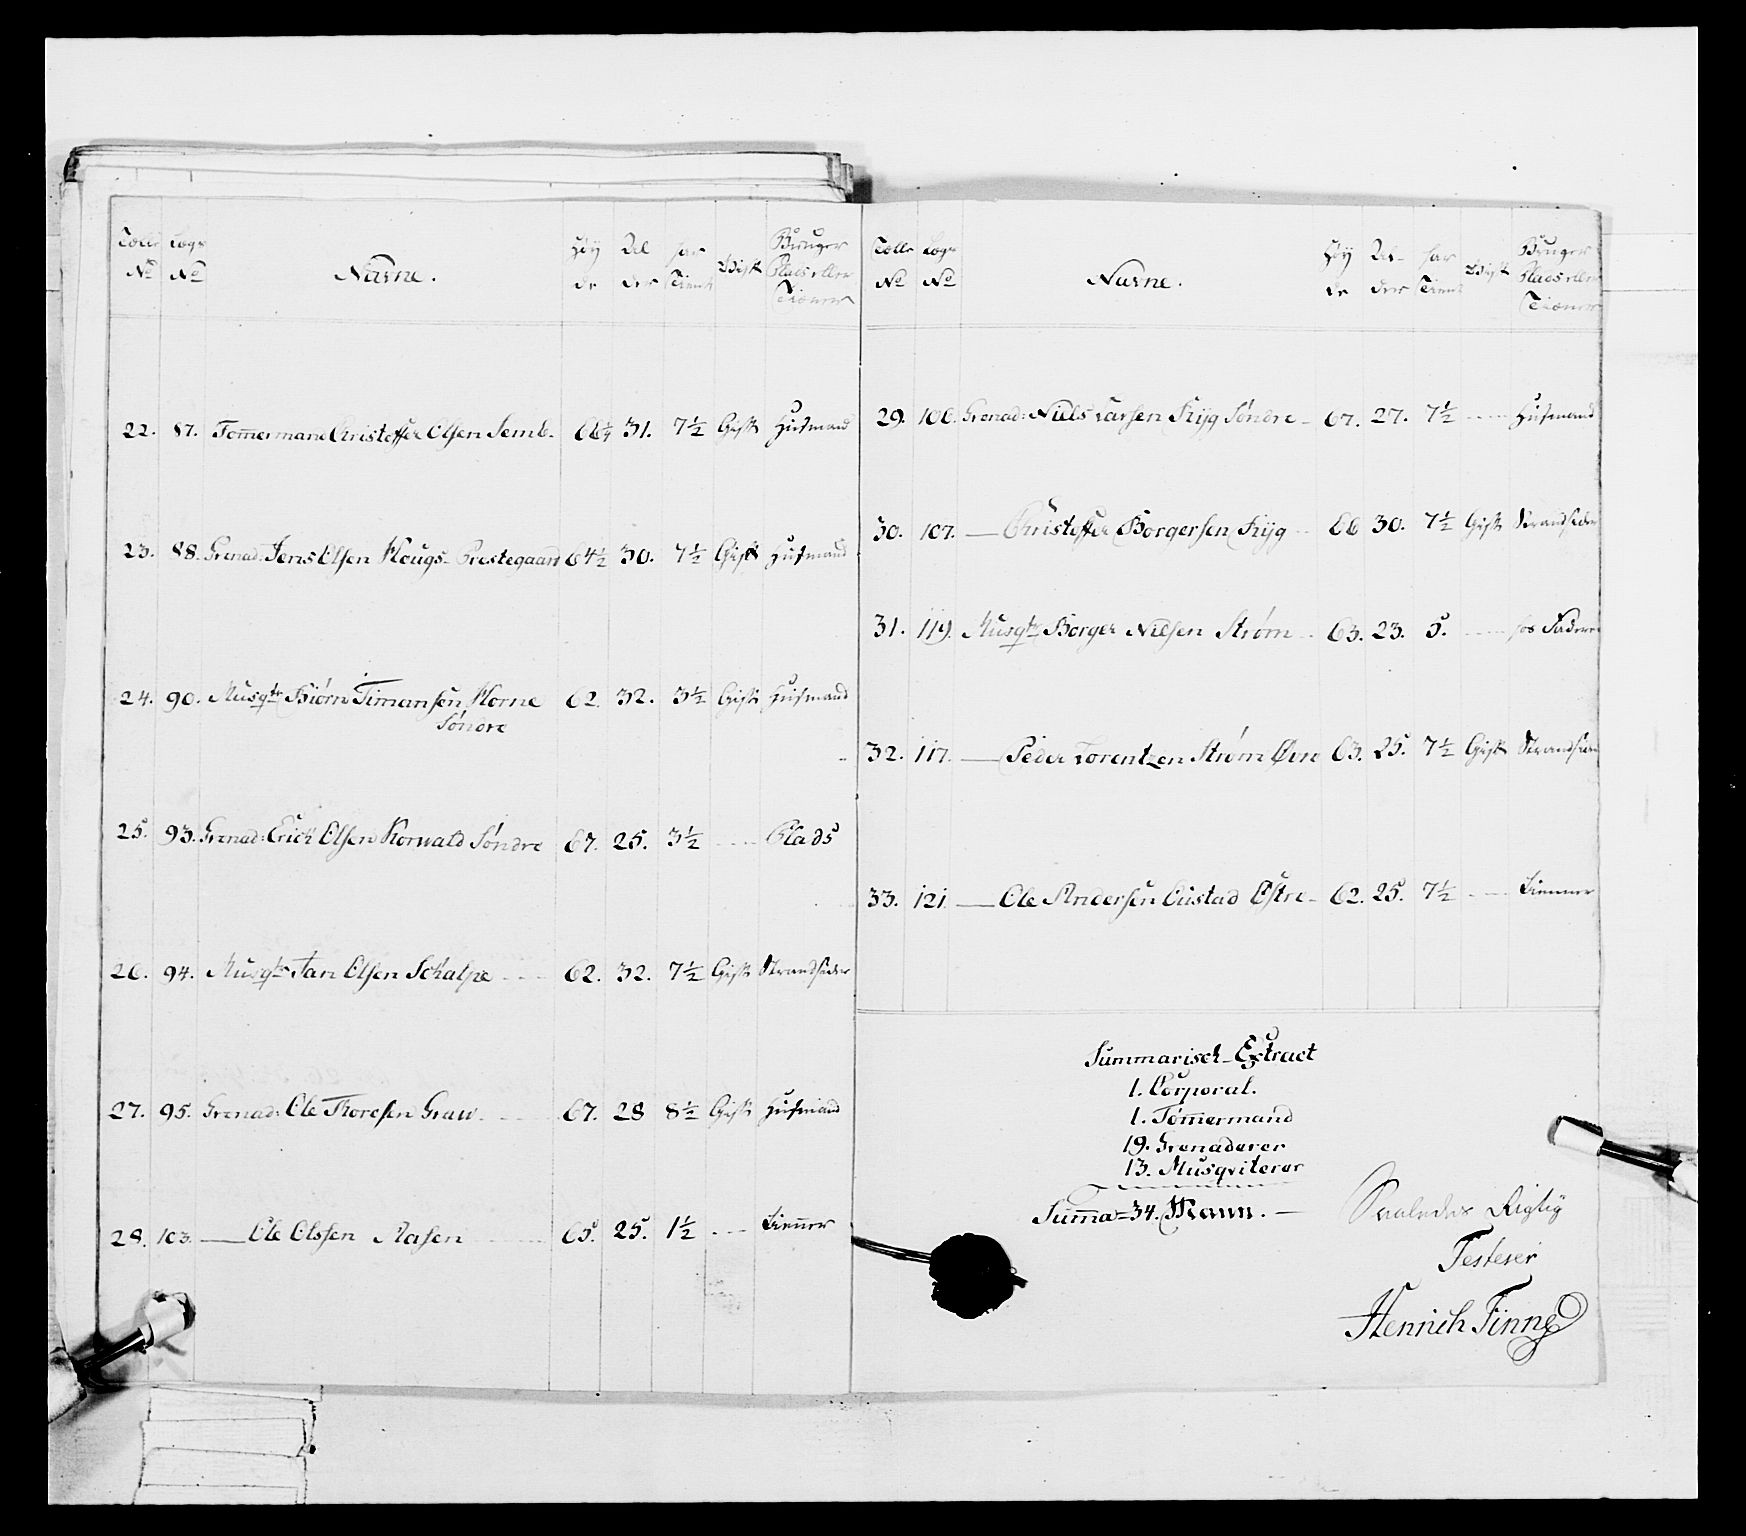 Tælle Lægs Høy Al har Bruger
No No Navne. de der Tient Gift Plads eller Tiener
22. 87. Tom̄ermand Christoffer Olsen Semb. 66½ 31. 7½ Gift Huusmand
23. 88. Grenad: Jens Olsen Hougs- Prestegaard 64½ 30. 7½ Gift Huusmand
24. 90. Musqtr Biørn Timansen Horne 62. 32. 3½ Gift Huusmand
Søndre
25. 93. Grenad: Erich Olsen Korvald Søndre 67. 25. 3½ Plads
26. 94. Musqtr Jan Olsen Schalpe 62. 32. 7½ Gift Strandsidder
27. 95. Grenad: Ole Thoresen Grav 67. 28 8½ Gift Huusmand
28. 103. — Ole Olssen Aasen 65. 25. 1½ Tienner
Tælle Lægs Høy Al- har Bruger
No No Navne. de der Tient Gift Plads eller Tiener
29. 106. Grenad: Niels Larsen Kijg Søndre 67. 27. 7½ Huusmand
30. 107. — Christoffer Borgersen Kijg 66 30. 7½ Gift Strandsidder
31. 119. Musqtr Borger Nilsen Strøm 63. 23. 5. hos Faderen
32. 117. — Peder Lorentzen Strøm Øvre 63. 25. 7½ Gift Strandsidder
33. 121. — Ole Andersen Oustad Østre 62. 25. 7½ Tienner
Summarisch-Extract
1. Corporal.
1. Tøm̄ermand
19. Grenaderer
13. Musqviterer
Sum̄a=34. Mann.
Saaledes Rigtig
Testerer
Henrich Finne